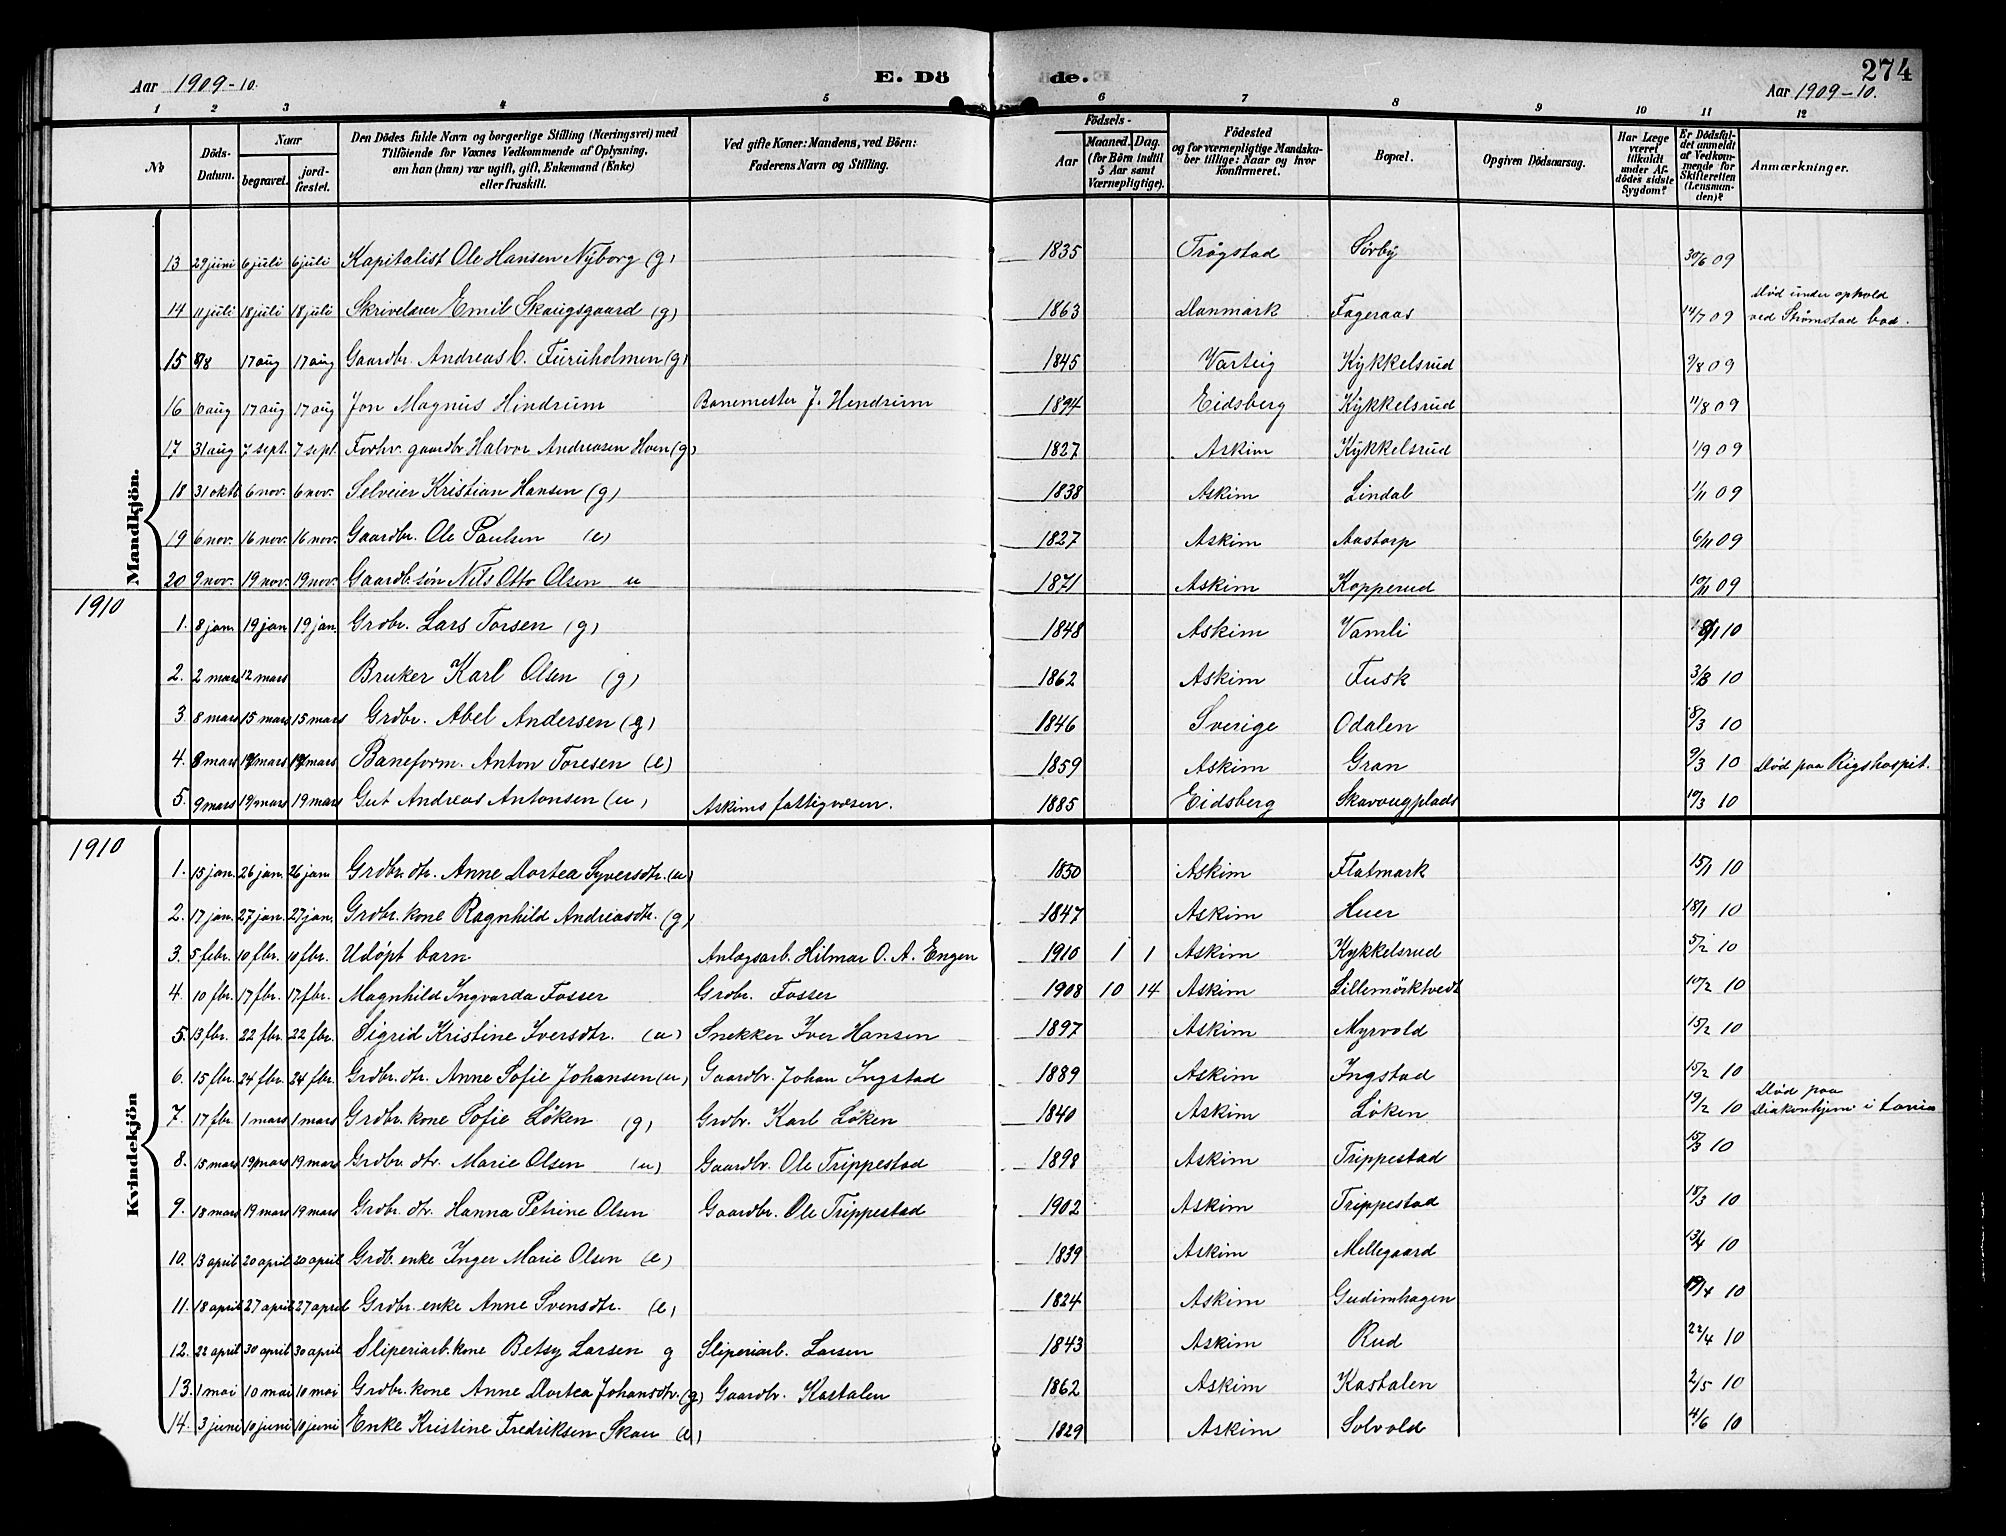 Aar 1909-10.
E. Dö
de.
274
Aar 1909-10.
1 2 3 4 5 6 7 8 9 10 11 12
No
Döds-Datum.
Naar
begravet.
jord-fæstet.
Den Dödes fulde Navn og borgerlige Stilling (Næringsvei) med
Tilföiende for Voxnes Vedkommende af Oplysning,
om han (hun) var ugift, gift, Enkemand (Enke)
eller fraskilt.
Ved gifte Koner: Mandens, ved Börn:
Faderens Navn og Stilling.
Födsels-
Aar
Maaned. Dag.
(for Börn indtil
5 Aar samt
Værnepligtige).
Födested
og for værnepligtige Mandska-
ber tillige: Naar og hvor
konfirmeret.
Bopæl.
Opgiven Dödsaarsag.
Har Læge
været
tilkaldt
under Af-
dödes sidste
Sygdom?
Er Dödsfal-
det anmeldt
af Vedkom-
mende for
Skifteretten
(Lensman-
den)?
Anmærkninger.
Mandkjön.
13 29 juni 6 juli 6 juli Kapitalist Ole Hansen Nyborg (g) 1835 Trøgstad Sørby 30/6 09
14 11 juli 18 juli 18 juli Skrivelærer Emil Skaugsgaard (g) 1863 Danmark Fageraas 14/7 09 Død under ophold
ved Strømstad bad.
15 8/8 17 aug 17 aug Gaardbr. Andreas C. Furuholmen (g) 1845 Varteig Kykkelsrud 9/8 09
16 10 aug 17 aug 17 aug Jon Magnus Hindrum Banemester J. Hendrum 1894 Eidsberg Kykkelsrud 11/8 09
17 31 aug 7 sept. 7 sept. Forhv. gaardbr Halvor Andreasen Hoen (g) 1827 Askim Kykkelsrud 1/9 09
18 31 okt 6 nov. 6 nov. Selveier Kristian Hansen (g) 1838 Askim Lindal 1/11 09
19 6 nov. 16 nov. 16 nov. Gaardbr. Ole Paulsen (e) 1827 Askim Aastorp 6/11 09
20 9 nov. 19 nov. 19 nov. Gaardb. søn Nils Otto Olsen u 1871 Askim Kopperud 10/11 09
1910
1. 8 jan. 19 jan 19 jan. Grdbr. Lars Torsen (g) 1848 Askim Vamli 8/1 10
2. 2 mars 12 mars Bruker Karl Olsen (g) 1862 Askim Fusk 3/3 10
3. 8 mars 15 mars 15 mars Grdbr. Abel Andersen (g) 1846 Sverige Odalen 8/3 10
4. 8 mars 19 mars 19 mars Baneform. Anton Toresen (e) 1859 Askim Gran 9/3 10 Død paa Rigshospit.
5. 9 mars 19 mars 19 mars Gut Andreas Antonsen (u) Askims fattigvæsen. 1885 Eidsberg Skavougplads 10/3 10
1910
Kvindekjön
1. 15 jan. 26 jan. 26 jan. Grdbr. dtr. Anne Dortea Syversdtr. (u) 1830 Askim Flatmark 15/1 10
2. 17 jan. 27 jan. 27 jan. Grdbr. kone Ragnhild Andreasdtr. (g) 1847 Askim Huer 18/1 10
3. 5 febr. 10 fbr. 10 fbr. Udøpt barn Anlægsarb. Hilmar O. A. Engen 1910 1 1 Askim Kykkelsrud 5/2 10
4. 10 fbr. 17 fbr. 17 fbr. Magnhild Ingvarda Fosser Grdbr. Fosser 1908 10 14 Askim Lillemörktvedt 10/2 10
5. 13 fbr. 22 fbr. 22 fbr. Sigrid Kristine Iversdtr. (u) Snekker Iver Hansen 1897 Askim Myrvold 15/2 10
6. 15 fbr. 24 fbr. 24 fbr. Grdbr. dtr. Anne Sofie Johansen (u) Gaardbr. Johan Ingstad 1889 Askim Ingstad 15/2 10
7. 17 fbr. 1 mars 1 mars Grdbr. kone Sofie Løken (g) Grdbr. Karl Løken 1840 Askim Løken 19/2 10 Død paa
Diakonhjem i
8. 15 mars 19 mars 19 mars Grdbr. dtr. Marie Olsen (u) Gaardbr. Ole Trippestad 1898 Askim Trippestad 15/3 10
9. 18 mars 19 mars 19 mars Grdbr. dtr. Hanna Petrine Olsen Gaardbr. Ole Trippestad 1902 Askim Trippestad 18/3 10
10. 13 april 20 april 20 april Grdb. enke Inger Marie Olsen (e) 1839 Askim Mellegaard 13/4 10
11. 18 april 27 april 27 april Grdbr. enke Anne Svensdtr. (e) 1824 Askim Gudimhagen 19/4 10
12. 22 april 30 april 30 april Sliperiarb. kone Betsy Larsen g Sliperiarb. Larsen 1843 Askim Rud 22/4 10
13. 1 mai 10 mai 10 mai Grdbr. kone Anne Dortea Johansdtr. (g) Gaardbr. Kastalen 1862 Askim Kastalen 2/5 10
14. 3 juni 10 juni 10 juni Enke Kristine Fredriksen Skau (e) 1829 Askim Solvold 4/6 10